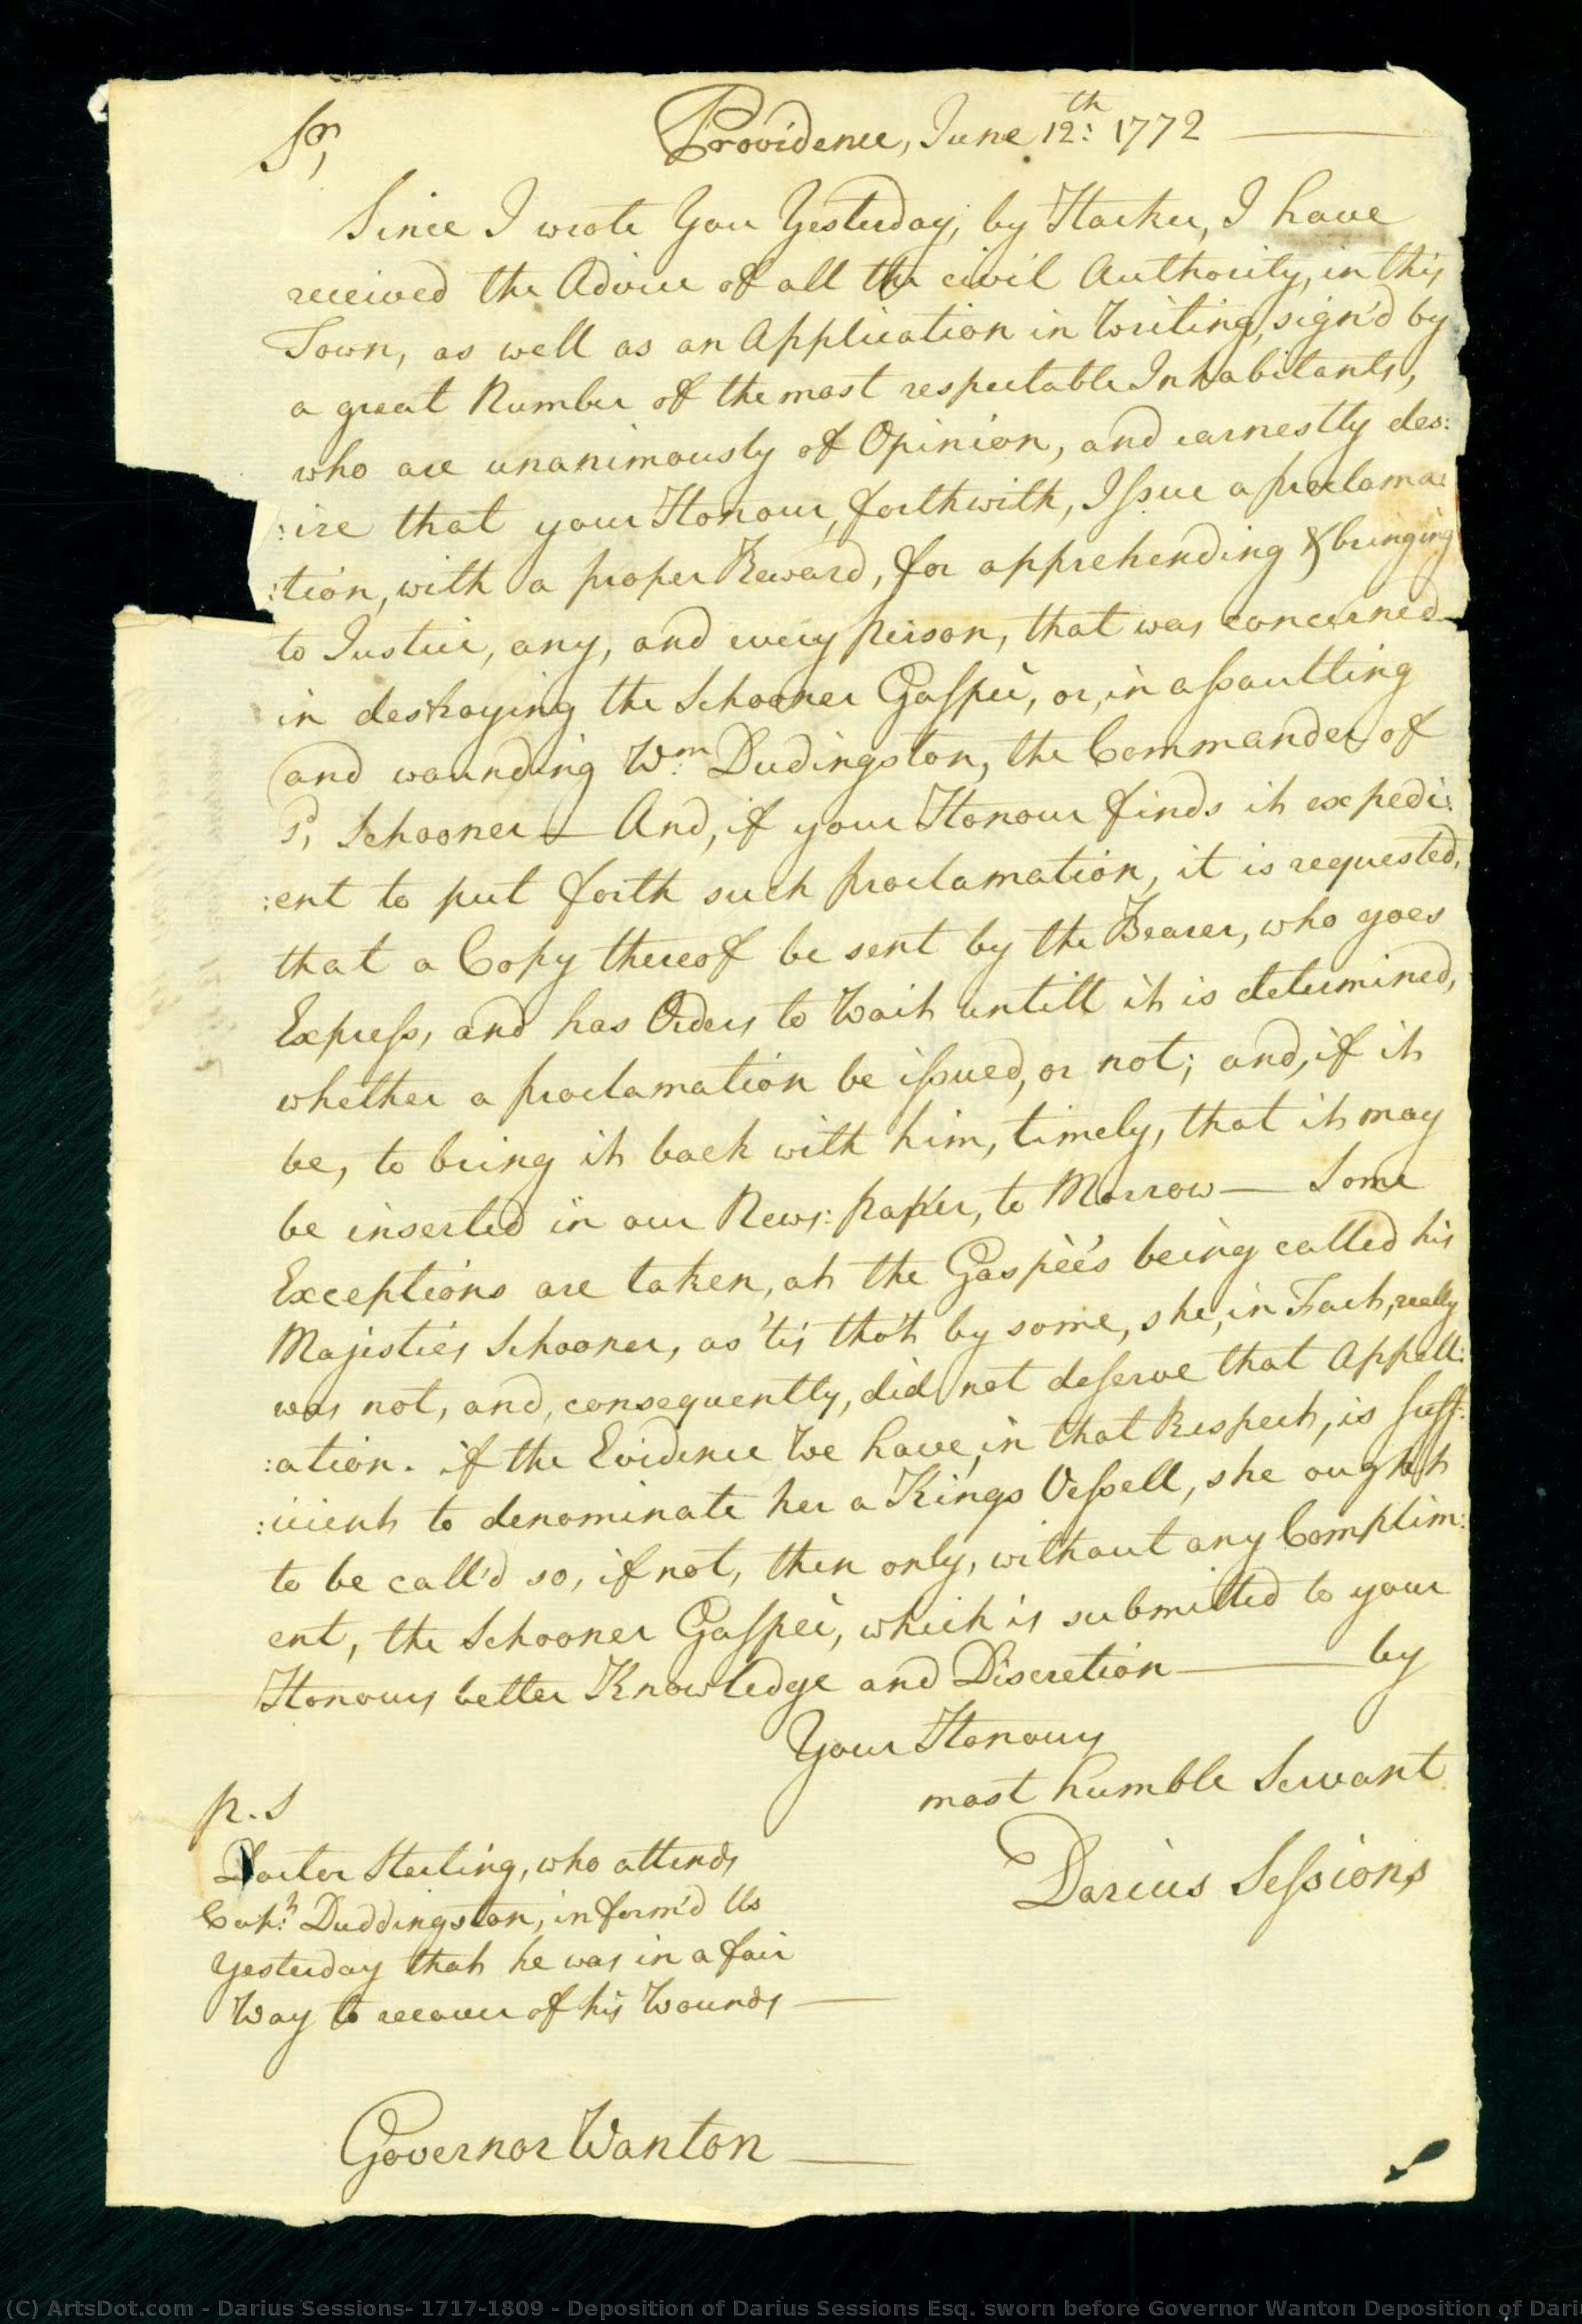 Sr,
Providence, June 12th: 1772
Since I wrote You Yesterday, by Hacker, I have
received the Advice of all the civil Authority, in this
Town, as well as an Application in Writing, sign'd by
a great Number of the most respectable Inhabitants,
who are unanimously of Opinion, and earnestly des:
:ire that your Honour, forthwith, Issue a proclama:
:tion, with a proper Reward, for apprehending & bringing
to Justice, any, and every person, that was concerned
in destroying the Schooner Gaspeè, or, in assaulting
and wounding Wm: Dudingston, the Commander of
sd, Schooner — And, if your Honour finds it expedi:
:ent to put forth such proclamation, it is requested,
that a Copy thereof be sent by the Bearer, who goes
Express, and has Orders to Wait untill it is determined,
whether a proclamation be issued, or not; and, if it
be, to bring it back with him, timely, that it may
be inserted in our News:paper, to Morrow — Some
Exceptions are taken, at the Gaspèe's being called his
Majesties Schooner, as 'tis tho't by some, she, in Fact, really
was not, and, consequently, did not deserve that Appell:
:ation. if the Evidence We have, in that Respect, is suff:
:icient to denominate her a Kings Vessell, she ought
to be call'd so, if not, then only, without any Complim:
ent, the Schooner Gaspeè, which is submitted to your
Honours better Knowledge and Discretion — by
Your Honours
most humble Servant
Darius Sessions
p.s
Docter Sterling, who attends
Capt: Duddingston, inform'd Us
Yesterday that he was in a fair
Way to recover of his Wounds —
Governor Wanton —
(C) ArtsDot.com - Darius Sessions- 1717-1809 - Deposition of Darius Sessions Esq. sworn before Governor Wanton Deposition of Dari